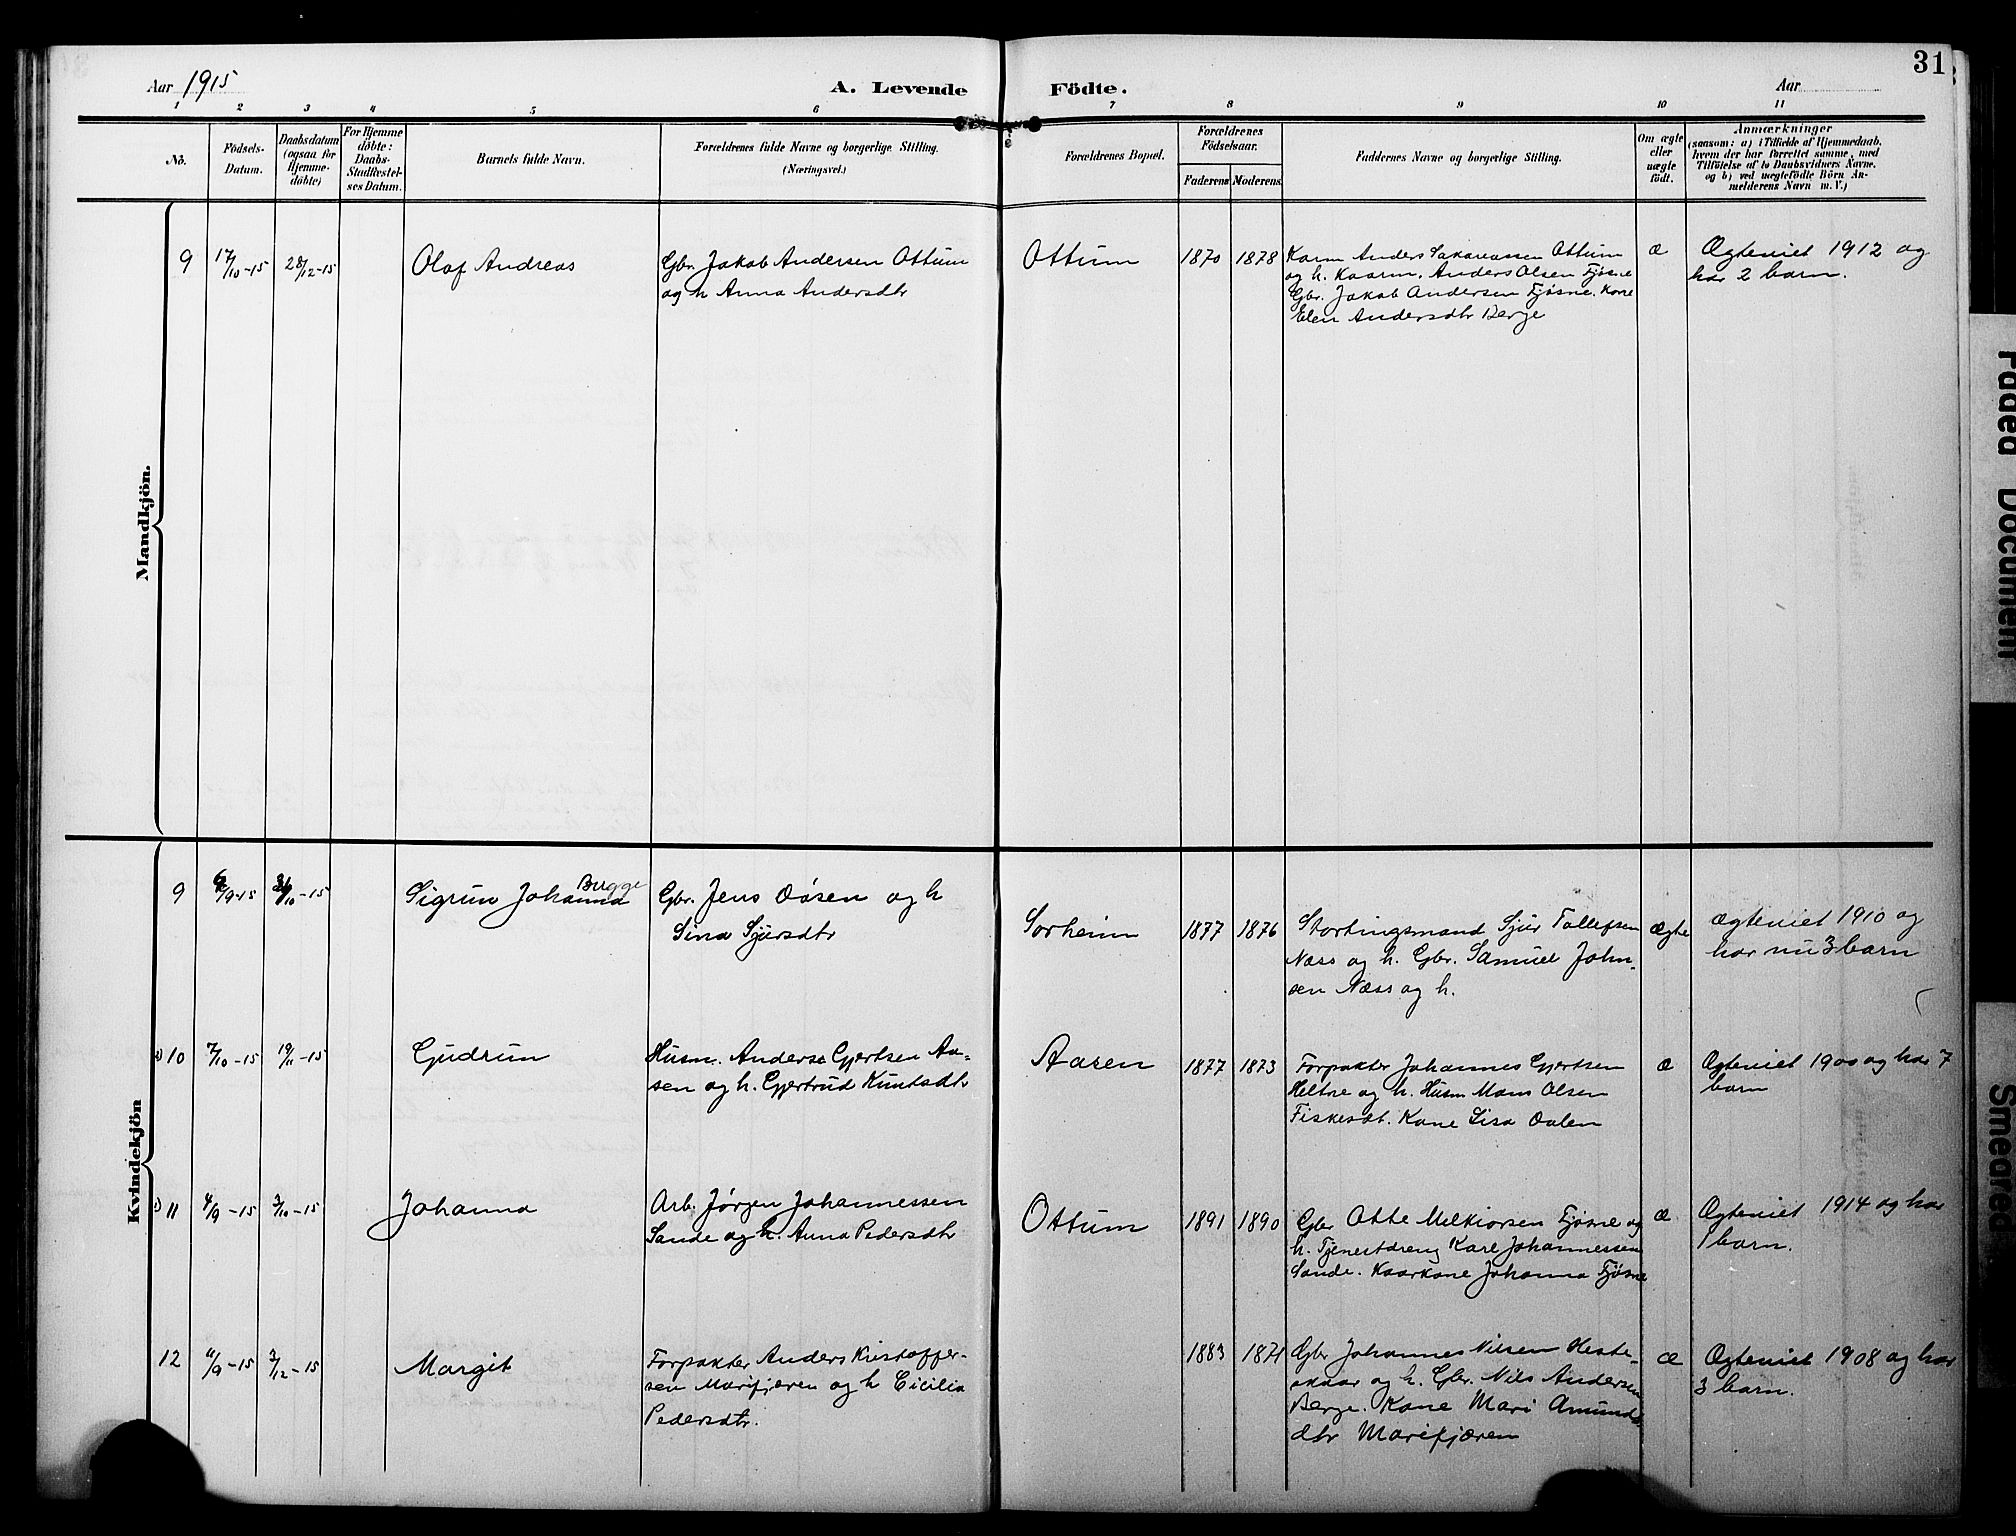 31
Aar 1915
A. Levende Födte.
Aar
1 2 3 4 5 6 7 8 9 10 11
No.
Födsels-
Datum.
Daabsdatum
(ogsaa for
Hjemme-
döbte)
For Hjemme
döbte:
Daabs-
Stadfæstel-
ses Datum.
Barnets fulde Navn.
Forældrenes fulde Navne og borgerlige Stilling.
(Næringsvei.)
Forældrenes Bopæl.
Forældrenes
Födselsaar.
Faderens Moderens
Faddernes Navne og borgerlige Stilling.
Om ægte
eller
uægte
födt.
Anmærkninger
(saasom: a) i Tilfælde af Hjemmedaab,
hvem der har forrettet samme, med
Tilföielse af to Daabsvidners Navne,
og b) ved uægtefödte Börn An-
melderens Navn m. V.)
Mandkjön.
9 17/10-15 28/12-15 Olaf Andreas
Gbr. Jakob Andersen Ottum
og h Anna Andersdtr
Ottum 1870 1878
Kaarm Anders Sakariassen Ottum
og h. Kaarm. Anders Olsen Fjøsne
Gbr. Jakob Andersen Fjøsne. Kone
Elen Andersdtr Berge
æ
Ægteviet 1912 og
har 2 barn.
Kvindekjön
9 /9-15 /10-15 Sigrun Johanna Bugge
Gbr. Jens Oösen og h
Sina Sjursdtr
Sorheim 1877 1876
Stortingsmand Sjur Tollefsen
Næss og h. Gbr. Samuel John-
sen Næss og h.
ægte
Ægteviet 1910 og
har nu 3 barn
10 7/10-15 19/11-15 Gudrun
Husm. Anders Gjertsen Aa-
sen og h. Gjertrud Knutsdtr
Aasen 1877 1873
Forpakter Johannes Gjertsen
Heltne og h. Husm Mons Olsen
Fiskesdt. Kone Lisa Dalen
æ
Ægteviet 1900 og har 7
barn
11 4/9-15 3/10-15 Johanna
Arb. Jørgen Johannessen
Sande og h. Anna Pedersdtr
Ottum 1891 1890
Gbr Otte Melkiorsen Fjøsne og
h. Tjenestdreng Karl Johannessen
Sande. Kaarkone Johanna Fjøsne
æ
Ægteviet 1914 og har
1 barn.
12 11/9-15 3/12-15 Margit
Forpakter Anders Kristoffer-
sen Marifjæren og h Cicilia
Pedersdtr.
1883 1871
Gbr Johannes Nilsen Heste-
skaar og h. Gbr. Nils Andersen
Berge. Kone Mari Amunds
dtr Marifjæren
æ
Ægteviet 1908 og har
3 barn.
Faded Document
Smeared